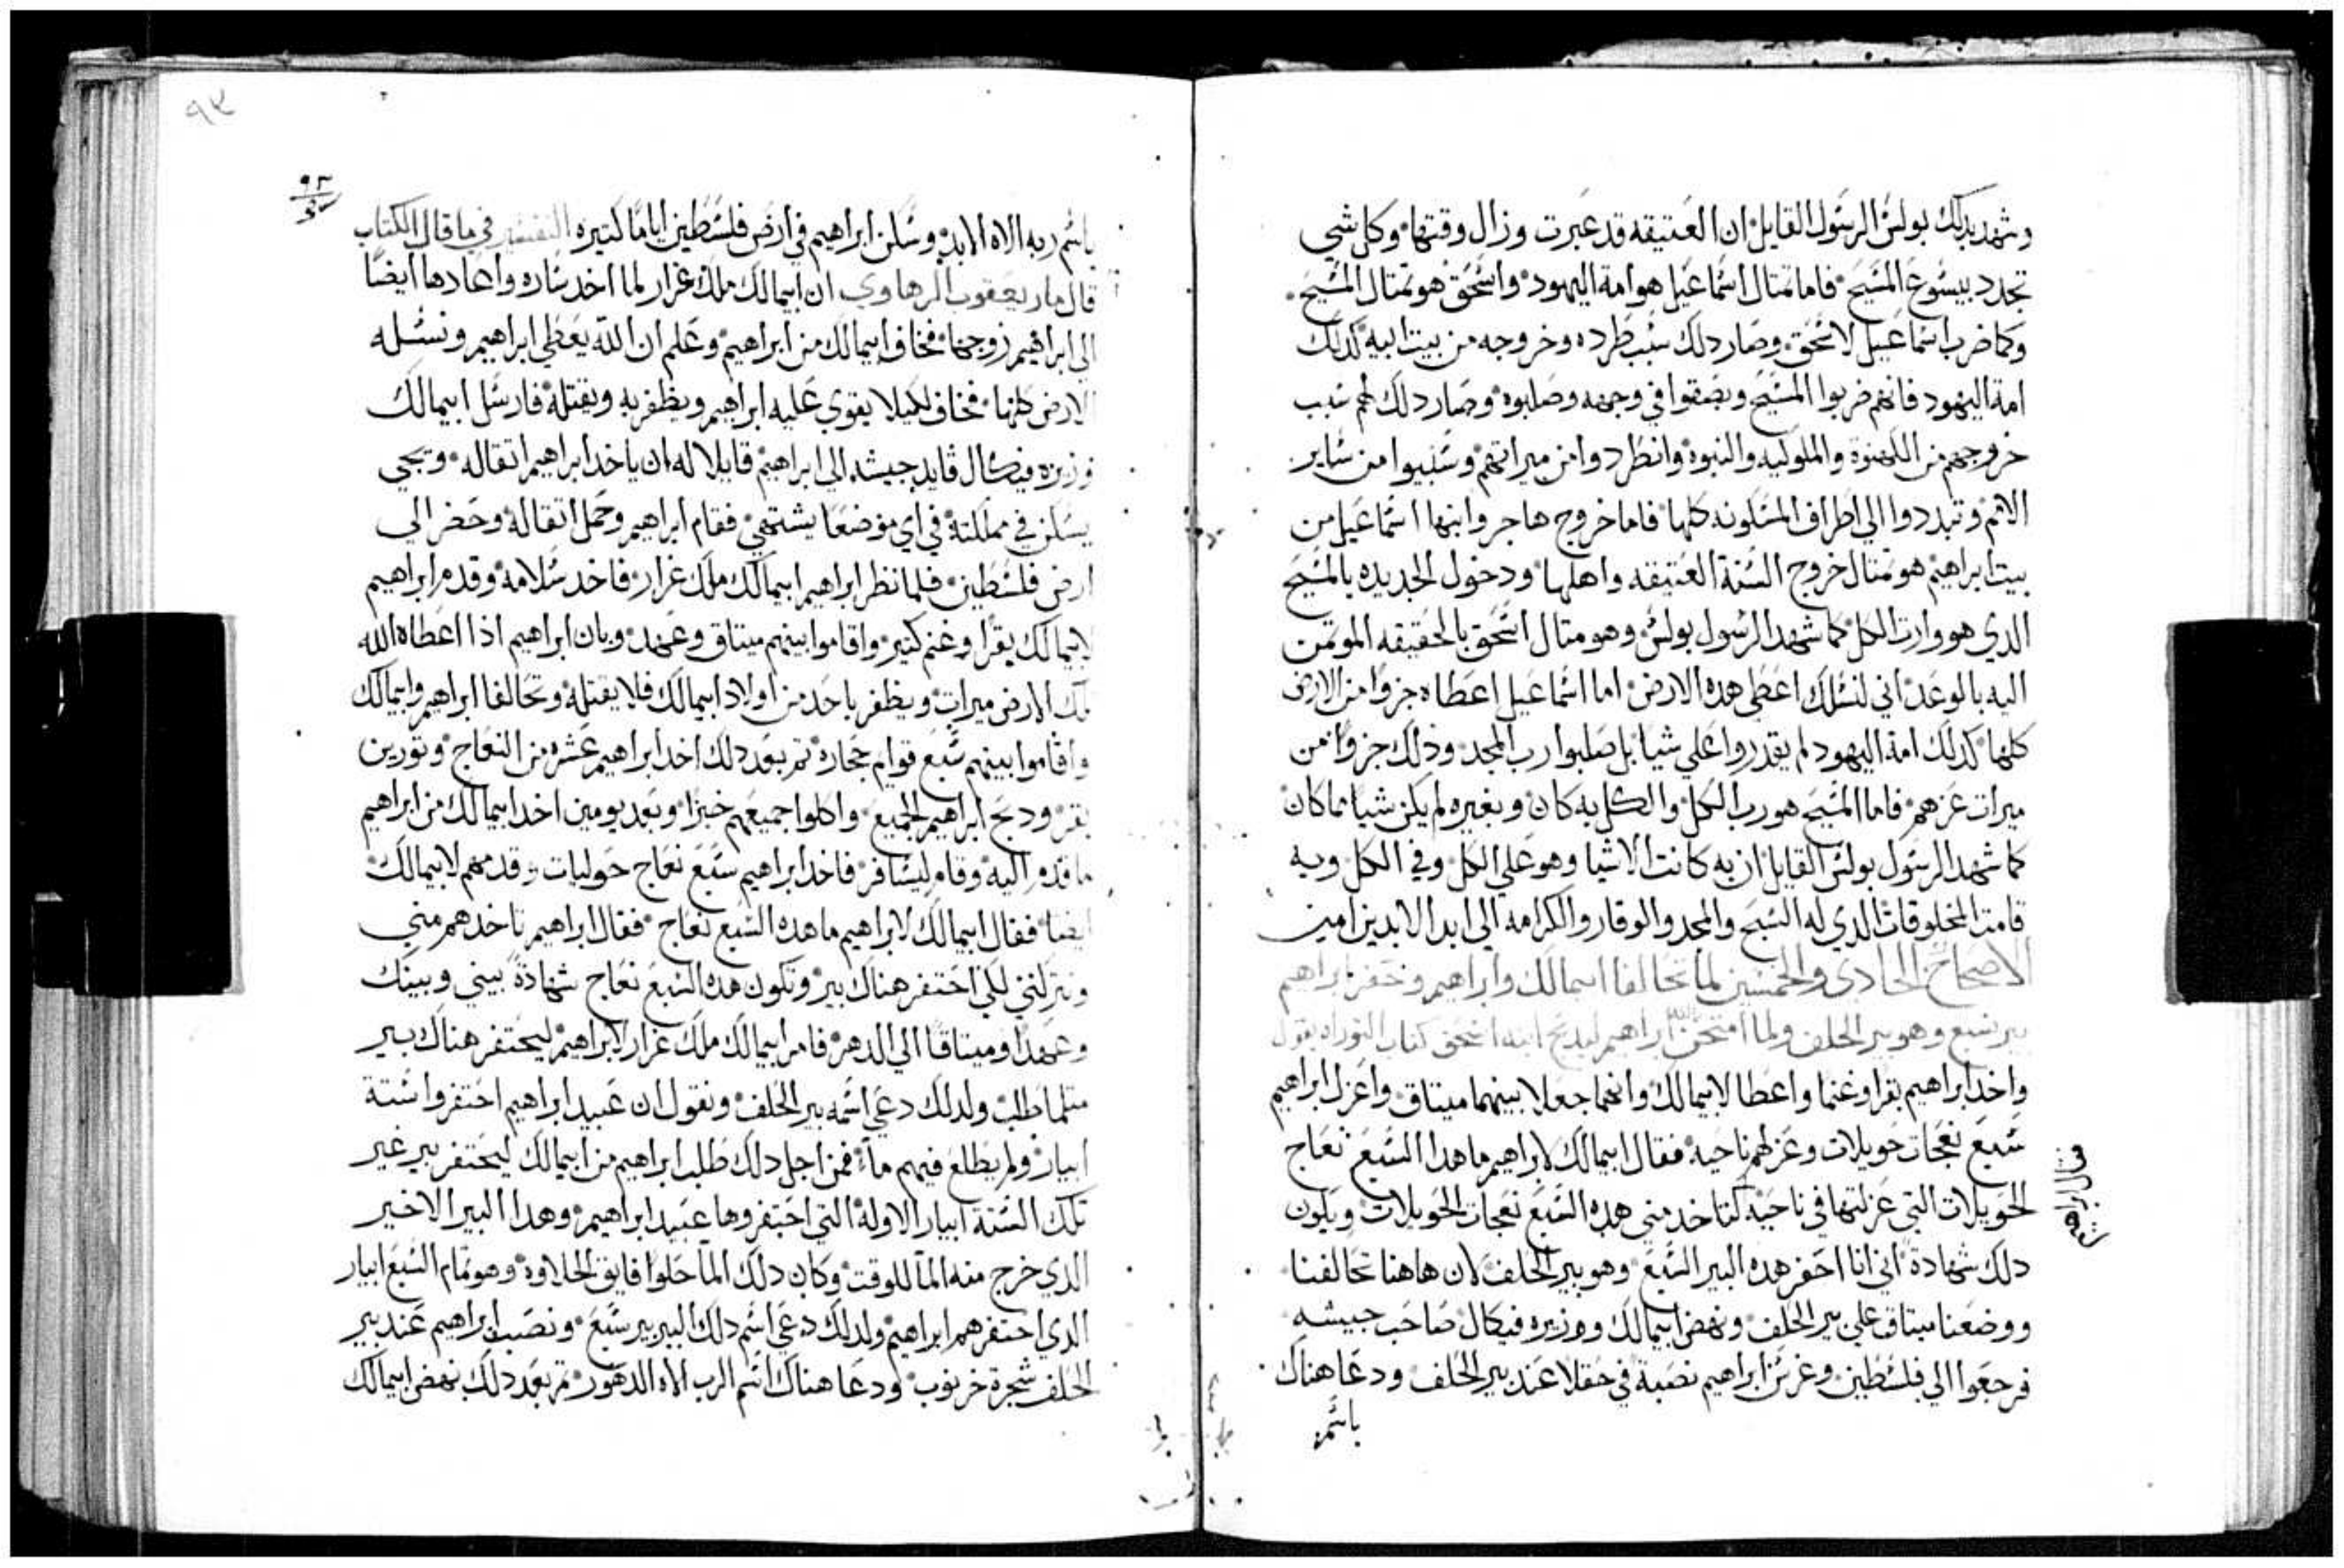 وشهد بدلك بولس الرسول القايل ان العتيقه قد عبرت وزال وقتها وكل شي
تجدد بيسوع المسيح فاما تمتال اسماعيل هو امة اليهود واسحق هو تمتال المسيح
وكما ضرب اسماعيل لاسحق وصار دلك سبب طرده وخروجه من بيت ابيه كدلك
امة اليهود فانهم ضربوا المسيح وبصقوا في وجهه وصلبوه وصار دلك لهم سبب
خروجهم من الكهنوة والملوكيه والنبوة وانطردوا من ميراتهم وسبيوا من ساير
الامم وتبددوا الي اطراف المسكونه كلها فاما خروج هاجر وابنها اسماعيل من
بيت ابراهيم هو تمتال خروج السنة العتيقه واهلها ودخول الجديده بالمسيح
الدي هو وارت الكل كما شهد الرسول بولس وهو متال اسحق بالحقيقه الموتمن
اليه بالوعد اني لنسلك اعطي هده الارض اما اسماعيل اعطاه جزوا من الارض
كلها كدلك امة اليهود لم يقدروا علي شيا بل صلبوا رب المجد ودلك جزوا من
ميرات عزهم فاما المسيح هو رب الكل والكل به كان وبغيره لم يكن شيا مما كان
كما شهد الرسول بولس القايل ان به كانت الاشيا وهو علي الكل وفي الكل وبه
قامت المخلوقات الدي له السبح والمجد والوقار والكرامه الي ابد الابدين امين
الاصحاح الحادي والخمسين لما تحالفا ابيمالك وابراهيم وحفر ابراهيم
بير سبع وهو بير الحلف ولما امتحن الله ابراهيم ليدبح ابنه اسحق كتاب التوراه يقول
واخد ابراهيم بقرا وغنما واعطا لابيمالك وانهما جعلا بينهما ميتاق واعزل ابراهيم
سبع نعجات حويلات وعزلهم ناحيه فقال ابيمالك لابراهيم ما هدا السبع نعاج
الحويلات التي عزلتها في ناحيه لتاخد مني هده السبع نعجات الحويلات ويكون
دلك شهادة اني انا احفر هده البير السبع وهو بير الحلف لان هاهنا تحالفنا
ووضعنا ميتاق علي بير الحلف ونهض ابيمالك ووزيره فيكال صاحب جيشه
فرجعوا الي فلسطين وغرس ابراهيم نصبة في حقلا عند بير الحلف ودعا هناك
باسم
٩٣
باسم ربه الاه الابد وسكن ابراهيم في ارض فلسطين اياما كتيره التفسير في ما قال الكتاب
قال مار يعقوب الرهاوي ان ابيمالك ملك غرار لما اخد ساره واعادها ايضا
الي ابراهيم زوجها فخاف ابيمالك من ابراهيم وعلم ان الله يعطي ابراهيم ونسله
الارض كلها فخاف لكيلا يقوي عليه ابراهيم ويظفر به ويقتله فارسل ابيمالك
وزيره فيكال قايد جيشه الي ابراهيم قايلا له ان ياخد ابراهيم اتقاله ويجي
يسكن في مملكته في اي موضعا يشتهي فقام ابراهيم وحمل اتقاله وحضر الي
ارض فلسطين فلما نظر ابراهيم ابيمالك ملك غرار فاخد سلامه وقدم ابراهيم
لابيمالك بقرا وغنم كتير واقاموا بينهم ميتاق وعهد وبان ابراهيم اذا اعطاه الله
تلك الارض ميرات ويظفر باحد من اولاد ابيمالك فلا يقتله وتحالفا ابراهيم وابيمالك
واقاموا بينهم سبع قوام حجاره تم بعد دلك اخد ابراهيم عشره من النعاج وتورين
بقر ودبح ابراهيم الجميع واكلوا جميعهم خبزا وبعد يومين اخد ابيمالك من ابراهيم
ما قدم اليه وقام ليسافر فاخد ابراهيم سبع نعاج حوليات وقدمهم لابيمالك
ايضا فقال ابيمالك لابراهيم ما هده السبع نعاج فقال ابراهيم تاخدهم مني
وتتركني لكي احتفر هناك بير وتكون هده السبع نعاج شهادة بيني وبينك
وعهدا وميتاقا الي الدهر فامر ابيمالك ملك غرار لابراهيم ليحتفر هناك بير
متلما طلب ولدلك دعي اسمه بير الحلف ونقول ان عبيد ابراهيم احتفروا ستة
ابيار ولم يطلع فيهم ما فمن اجل دلك طلب ابراهيم من ابيمالك ليحتفر بير غير
تلك الستة ابيار الاوله التي احتفروها عبيد ابراهيم وهدا البير الاخير
الدي خرج منه الما للوقت وكان دلك الما حلوا فايق الحلاوه وهو تمام السبع ابيار
الدي احتفرهم ابراهيم ولدلك دعي اسم دلك البير بير سبع ونصب ابراهيم عند بير
الحلف شجرة خرنوب ودعا هناك اسم الرب الاه الدهور تم بعد دلك نهض ابيمالك